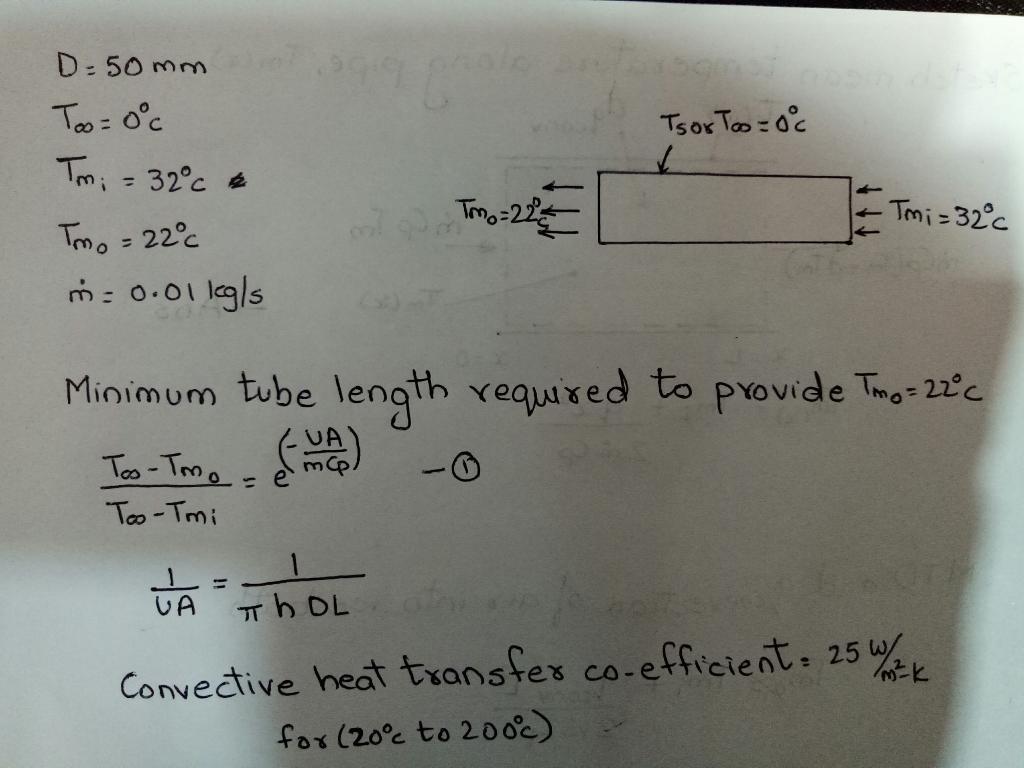 D = 50 mm
T∞ = 0°c
Tmi = 32°c
Tmo = 22°c
ṁ = 0.01 kg/s
Ts or T∞ = 0°c
Tmo = 22°c
Tmi = 32°c
Minimum tube length required to provide Tmo = 22°c
(T∞ - Tmo)/(T∞ - Tmi) = e^(-UA/mCp) - ①
1/UA = 1/(π h DL)
Convective heat transfer co-efficient = 25 W/m²-k
for (20°c to 200°c)